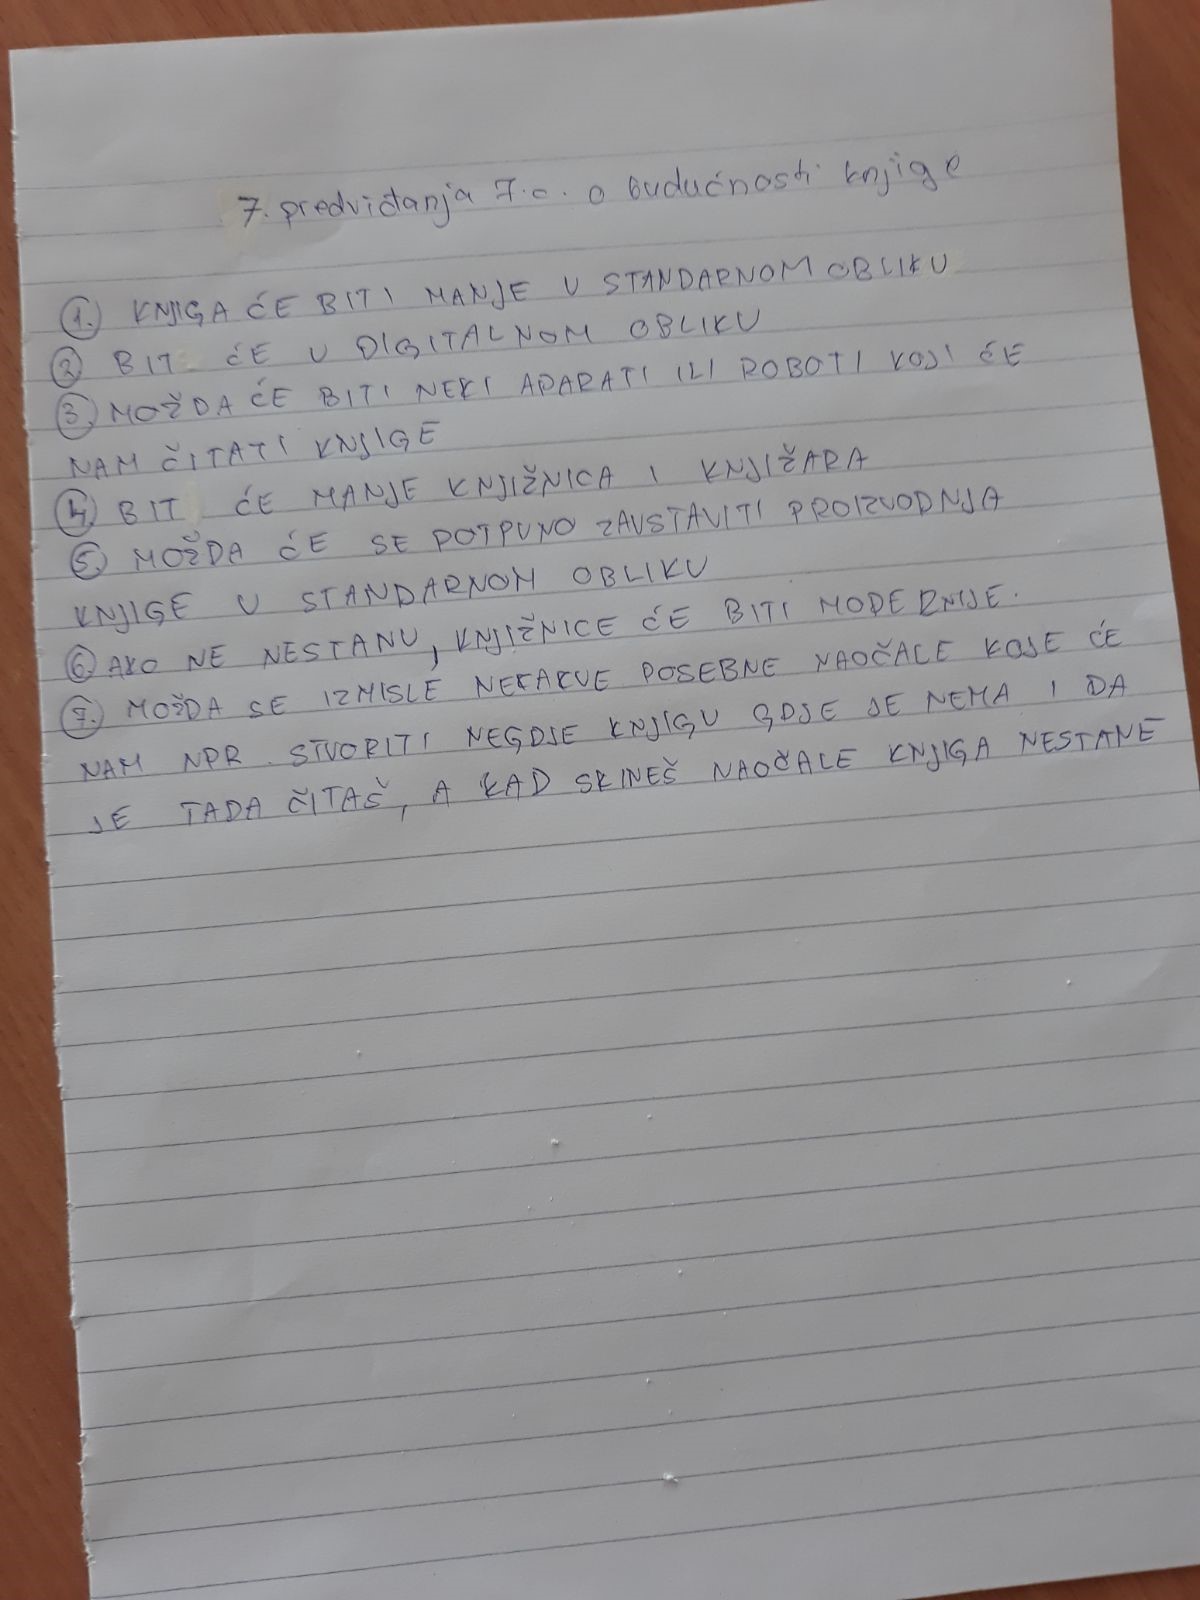 7. predviđanja 7.c. o budućnosti knjige
1. KNJIGA ĆE BITI MANJE U STANDARNOM OBLIKU
2 BIT ĆE U DIGITALNOM OBLIKU
3. MOŽDA ĆE BITI NEKI APARATI ILI ROBOTI KOJI ĆE
NAM ČITATI KNJIGE
4 BIT ĆE MANJE KNJIŽNICA I KNJIŽARA
5. MOŽDA ĆE SE POTPUNO ZAUSTAVITI PROIZVODNJA
KNJIGE U STANDARNOM OBLIKU
6. AKO NE NESTANU, KNJIŽNICE ĆE BITI MODERNIJE.
7. MOŽDA SE IZMISLE NEKAKVE POSEBNE NAOČALE KOJE ĆE
NAM NPR. STVORITI NEGDJE KNJIGU GDJE JE NEMA I DA
JE TADA ČITAŠ, A KAD SKINEŠ NAOČALE KNJIGA NESTANE